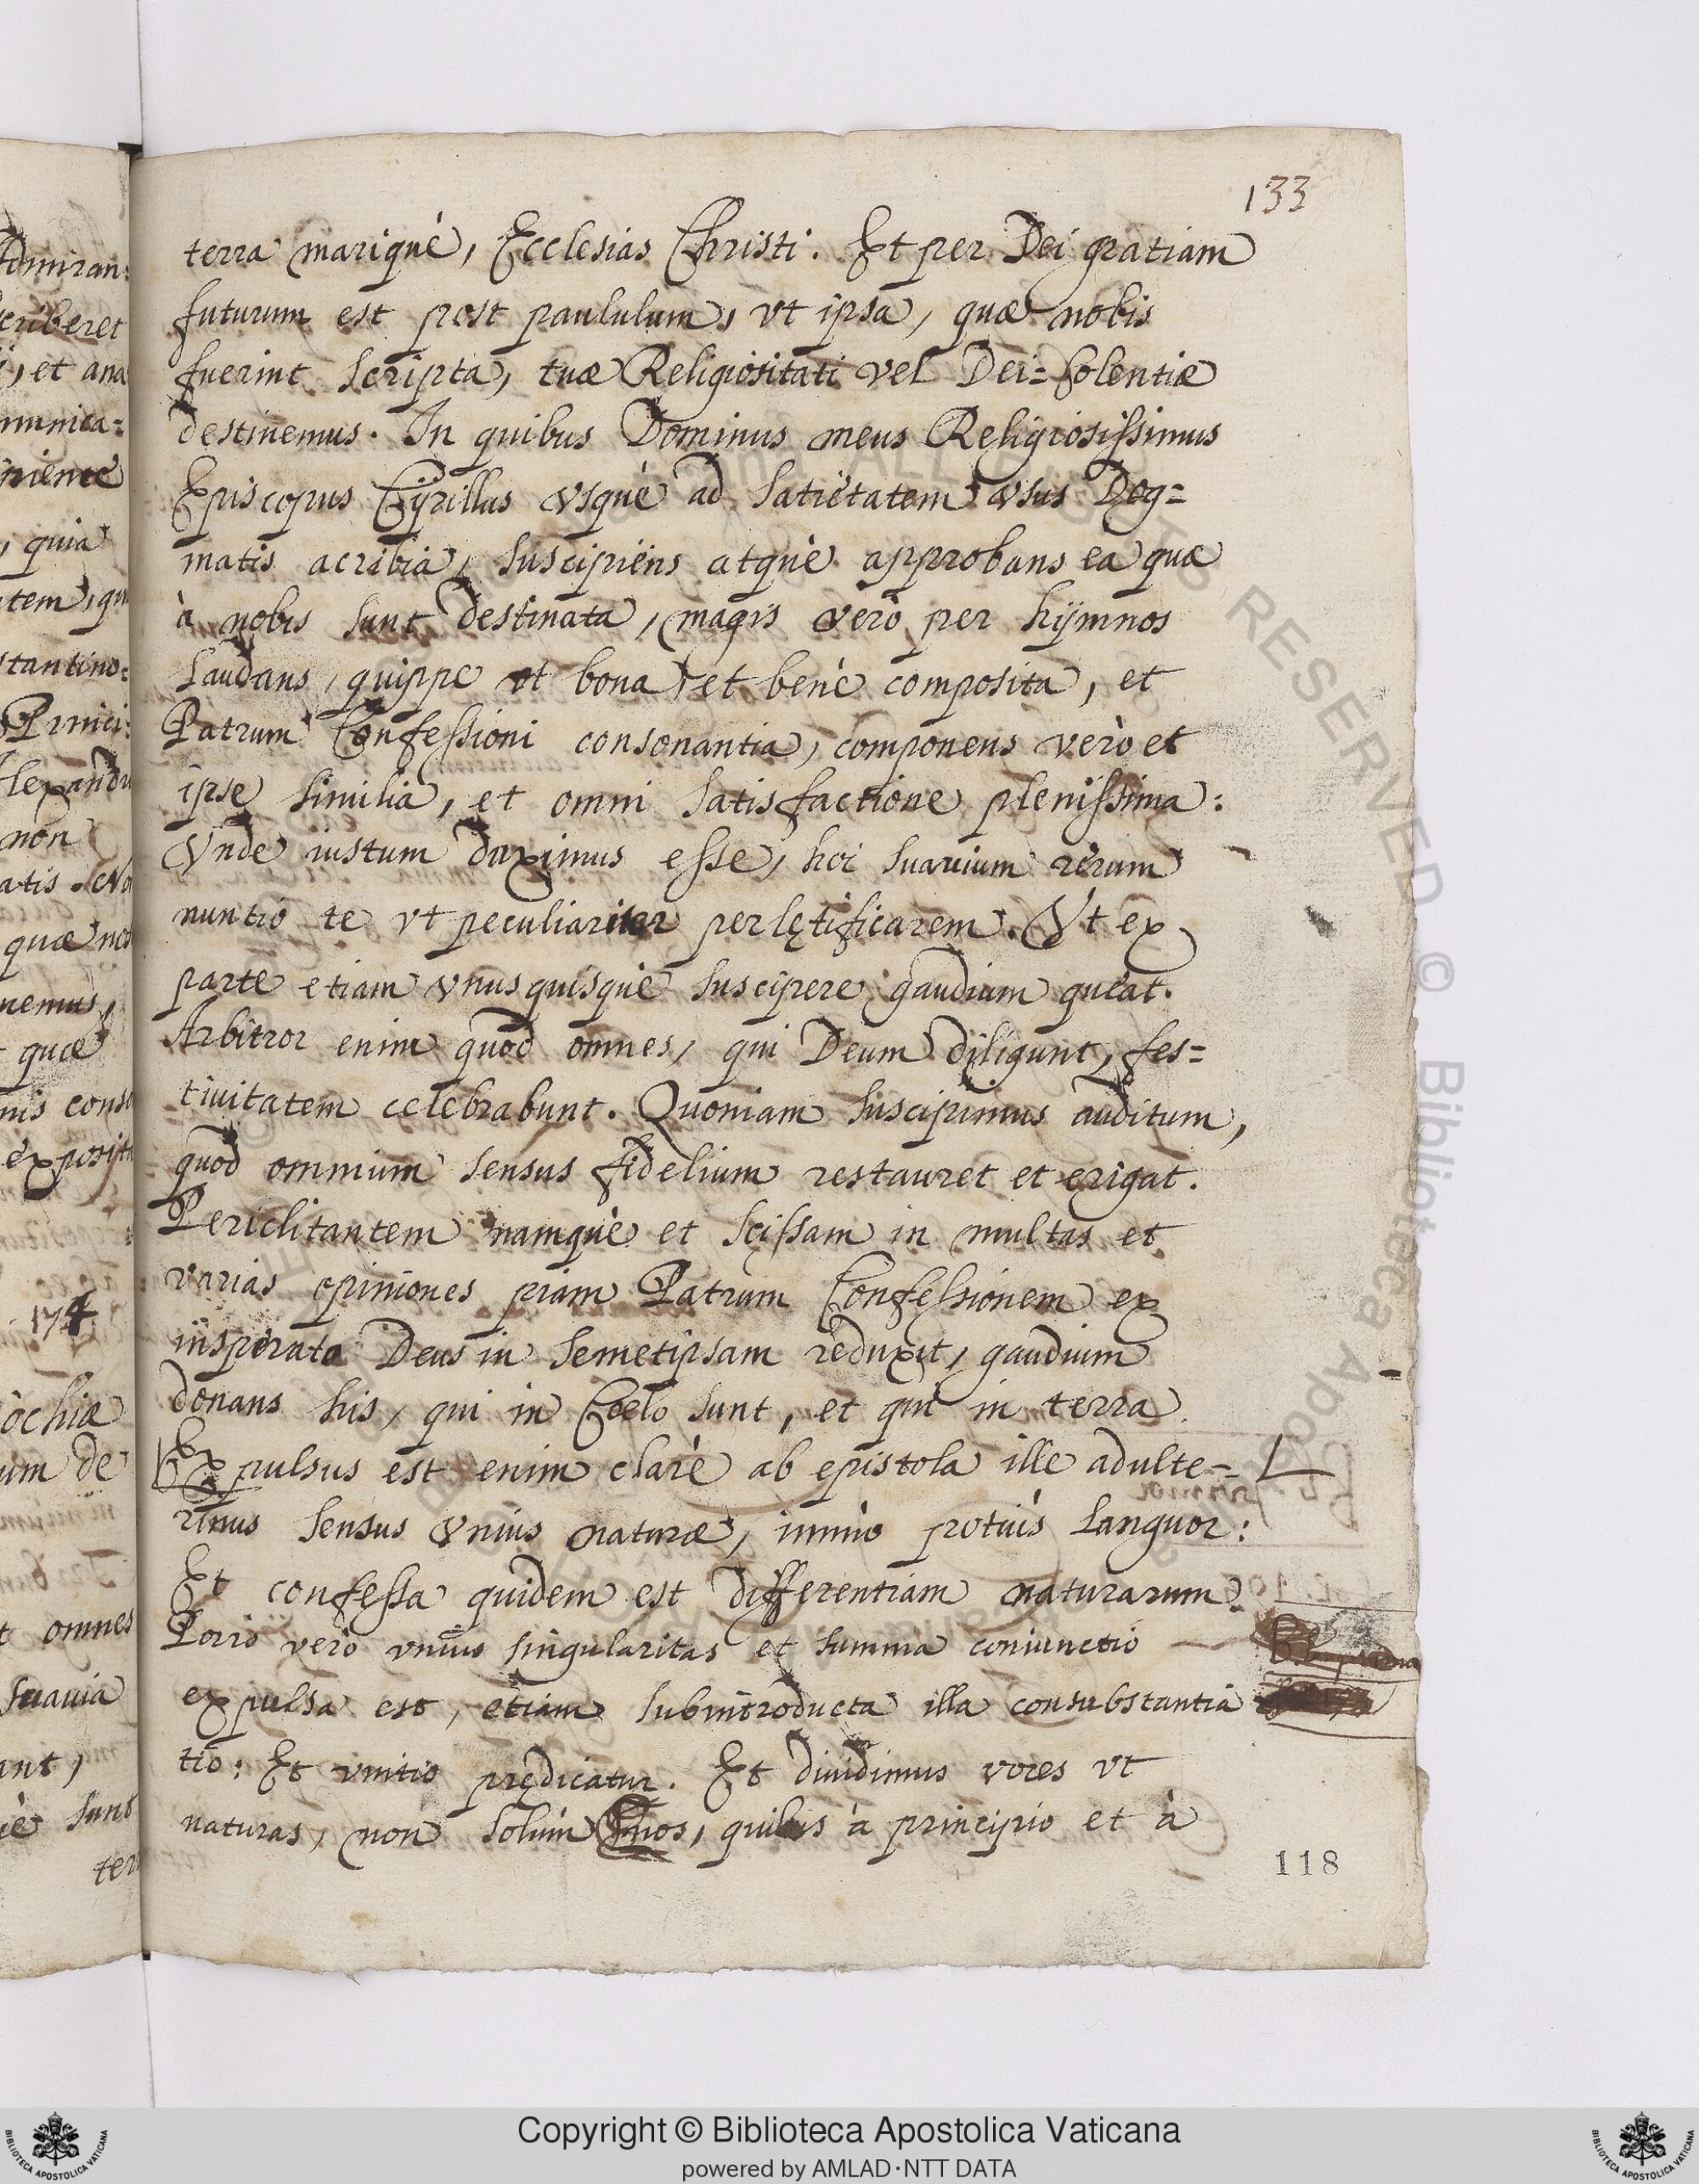 133
terra mariquè, Ecclesias Christi. Et per Dei gratiam
futurum est post paululum, vt ipsa, quæ nobis
fuerint scripta, tuæ Religiositati vel Dei=colentiæ
destinemus. In quibus Dominus meus Religiosissimus
Episcopus Cÿrillus vsquè ad satietatem vsus Dog=
matis acribia, suscipiens atquè approbans ea quæ
à nobis sunt destinata, magis verò per hÿmnos
laudans, quippe vt bona et benè composita, et
Patrum Confessioni consonantia, componens verò et
ipse similia, et omni satisfactione plenissima:
Vnde iustum duximus esse, hoc suauium rerum
nuntio te vt peculiariter perlętificarem. Vt ex
parte etiam vnusquisquè suscipere gaudium queat.
Arbitror enim quod omnes, qui Deum diligunt, fes=
tiuitatem celebrabunt. Quoniam suscipimus auditum,
quod omnium sensus fidelium restauret et erigat.
Periclitantem namquè et scissam in multas et
varias opiniones piam Patrum Confessionem ex
insperato Deus in semetipsam reduxit, gaudium
donans his, qui in Coelo sunt, et qui in terra.
Expulsus est enim clarè ab epistola ille adulte=
rinus sensus vnius naturæ, immò potiùs languor:
Et confessa quidem est differentiam naturarum.
Porrò verò vnius singularitas et summa coniunctio
expulsa est, etiam subintroducta illa consubstantia
tio: Et vnitio prędicatur. Et diuidimus voces vt
naturas, non solùm quibus à principio et à
118
Admiran=
criberet
et ana
munica=
quia
stantino=
non
quæ
nemus,
quæ
exposita
174
um de
omnes
suauia
sunt
Copyright © Biblioteca Apostolica Vaticana
powered by AMLAD·NTT DATA